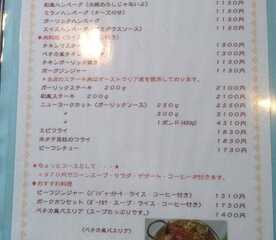 和風ハンバーグ (大根おろしじゃない) 1130円
ミラノハンバーグ (チーズ付き) 1150円
ガーリックハンバーグ 1130円
スイスハンバーグ (デミグラスソース) 1180円
チキンステーキ 1300円
ペチカ風チキン 1350円
チキンガーリック焼き 1300円
ポークジンジャー 1350円
ガーリックステーキ 200g 2200円
和風ステーキ 200g 2100円
ニューヨークカット (ガーリックソース) 250g 2250円
350g 3150円
1ポンド(450g) 4310円
エビフライ 1500円
ホタテ貝柱のフライ 1300円
ビーフシチュー 1730円
★ちょっとコースとして・・・
★+970円でコーンスープ・サラダ・デザート・コーヒーが付きます。
★おすすめ料理
ビーフジンジャー (ライス・コーヒー付き) 1310円
ポークカツセット (スープ・ライス・コーヒー付き) 1730円
ペチカ風パスリア (スープたっぷりです。) 1400円
(ペチカ風パスリア)